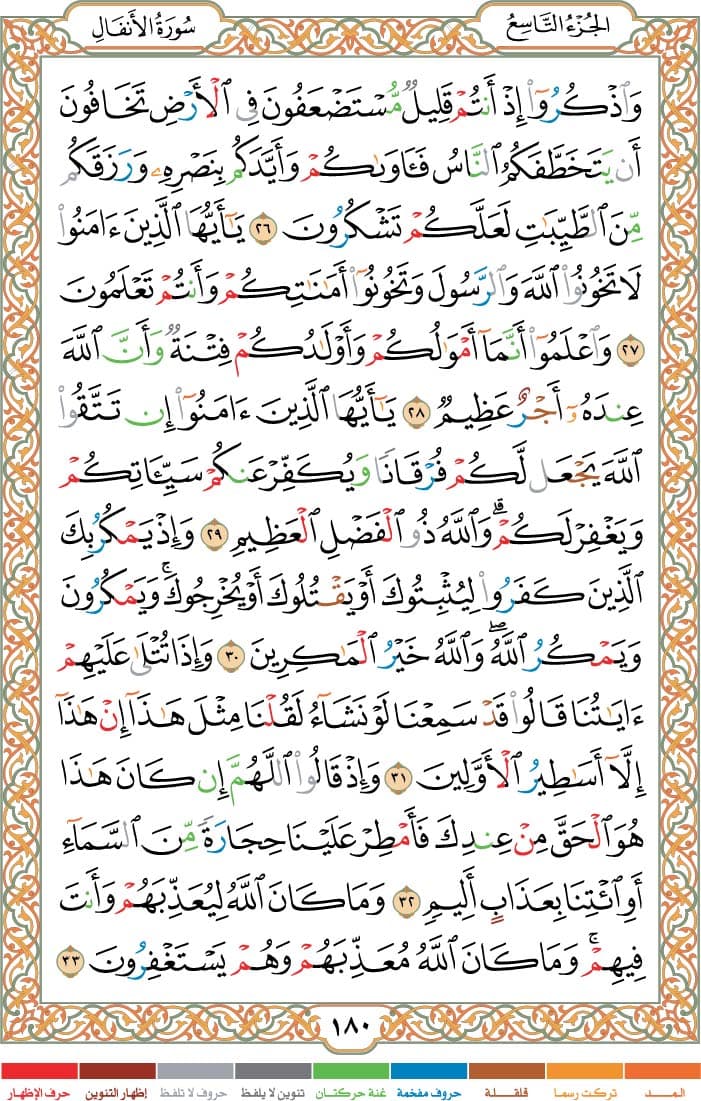 الجُزْءُ التَّاسِعُ
سُورَةُ الأَنفَالِ
وَٱذۡكُرُوٓاْ إِذۡ أَنتُمۡ قَلِيلٞ مُّسۡتَضۡعَفُونَ فِي ٱلۡأَرۡضِ تَخَافُونَ
أَن يَتَخَطَّفَكُمُ ٱلنَّاسُ فَـَٔاوَىٰكُمۡ وَأَيَّدَكُم بِنَصۡرِهِۦ وَرَزَقَكُم
مِّنَ ٱلطَّيِّبَٰتِ لَعَلَّكُمۡ تَشۡكُرُونَ ٢٦ يَٰٓأَيُّهَا ٱلَّذِينَ ءَامَنُواْ
لَا تَخُونُواْ ٱللَّهَ وَٱلرَّسُولَ وَتَخُونُوٓاْ أَمَٰنَٰتِكُمۡ وَأَنتُمۡ تَعۡلَمُونَ
٢٧ وَٱعۡلَمُوٓاْ أَنَّمَآ أَمۡوَٰلُكُمۡ وَأَوۡلَٰدُكُمۡ فِتۡنَةٞ وَأَنَّ ٱللَّهَ
عِندَهُۥٓ أَجۡرٌ عَظِيمٞ ٢٨ يَٰٓأَيُّهَا ٱلَّذِينَ ءَامَنُوٓاْ إِن تَتَّقُواْ
ٱللَّهَ يَجۡعَل لَّكُمۡ فُرۡقَانٗا وَيُكَفِّرۡ عَنكُمۡ سَيِّـَٔاتِكُمۡ
وَيَغۡفِرۡ لَكُمۡۗ وَٱللَّهُ ذُو ٱلۡفَضۡلِ ٱلۡعَظِيمِ ٢٩ وَإِذۡ يَمۡكُرُ بِكَ
ٱلَّذِينَ كَفَرُواْ لِيُثۡبِتُوكَ أَوۡ يَقۡتُلُوكَ أَوۡ يُخۡرِجُوكَۚ وَيَمۡكُرُونَ
وَيَمۡكُرُ ٱللَّهُۖ وَٱللَّهُ خَيۡرُ ٱلۡمَٰكِرِينَ ٣٠ وَإِذَا تُتۡلَىٰ عَلَيۡهِمۡ
ءَايَٰتُنَا قَالُواْ قَدۡ سَمِعۡنَا لَوۡ نَشَآءُ لَقُلۡنَا مِثۡلَ هَٰذَآ إِنۡ هَٰذَآ
إِلَّآ أَسَٰطِيرُ ٱلۡأَوَّلِينَ ٣١ وَإِذۡ قَالُواْ ٱللَّهُمَّ إِن كَانَ هَٰذَا
هُوَ ٱلۡحَقَّ مِنۡ عِندِكَ فَأَمۡطِرۡ عَلَيۡنَا حِجَارَةٗ مِّنَ ٱلسَّمَآءِ
أَوِ ٱئۡتِنَا بِعَذَابٍ أَلِيمٖ ٣٢ وَمَا كَانَ ٱللَّهُ لِيُعَذِّبَهُمۡ وَأَنتَ
فِيهِمۡۚ وَمَا كَانَ ٱللَّهُ مُعَذِّبَهُمۡ وَهُمۡ يَسۡتَغۡفِرُونَ ٣٣
١٨٠
المــد تركت رسما قلقلة حروف مفخمة غنة حركتان تنوين لا يلفظ حروف لا تلفظ إظهار التنوين حرف الإظهار